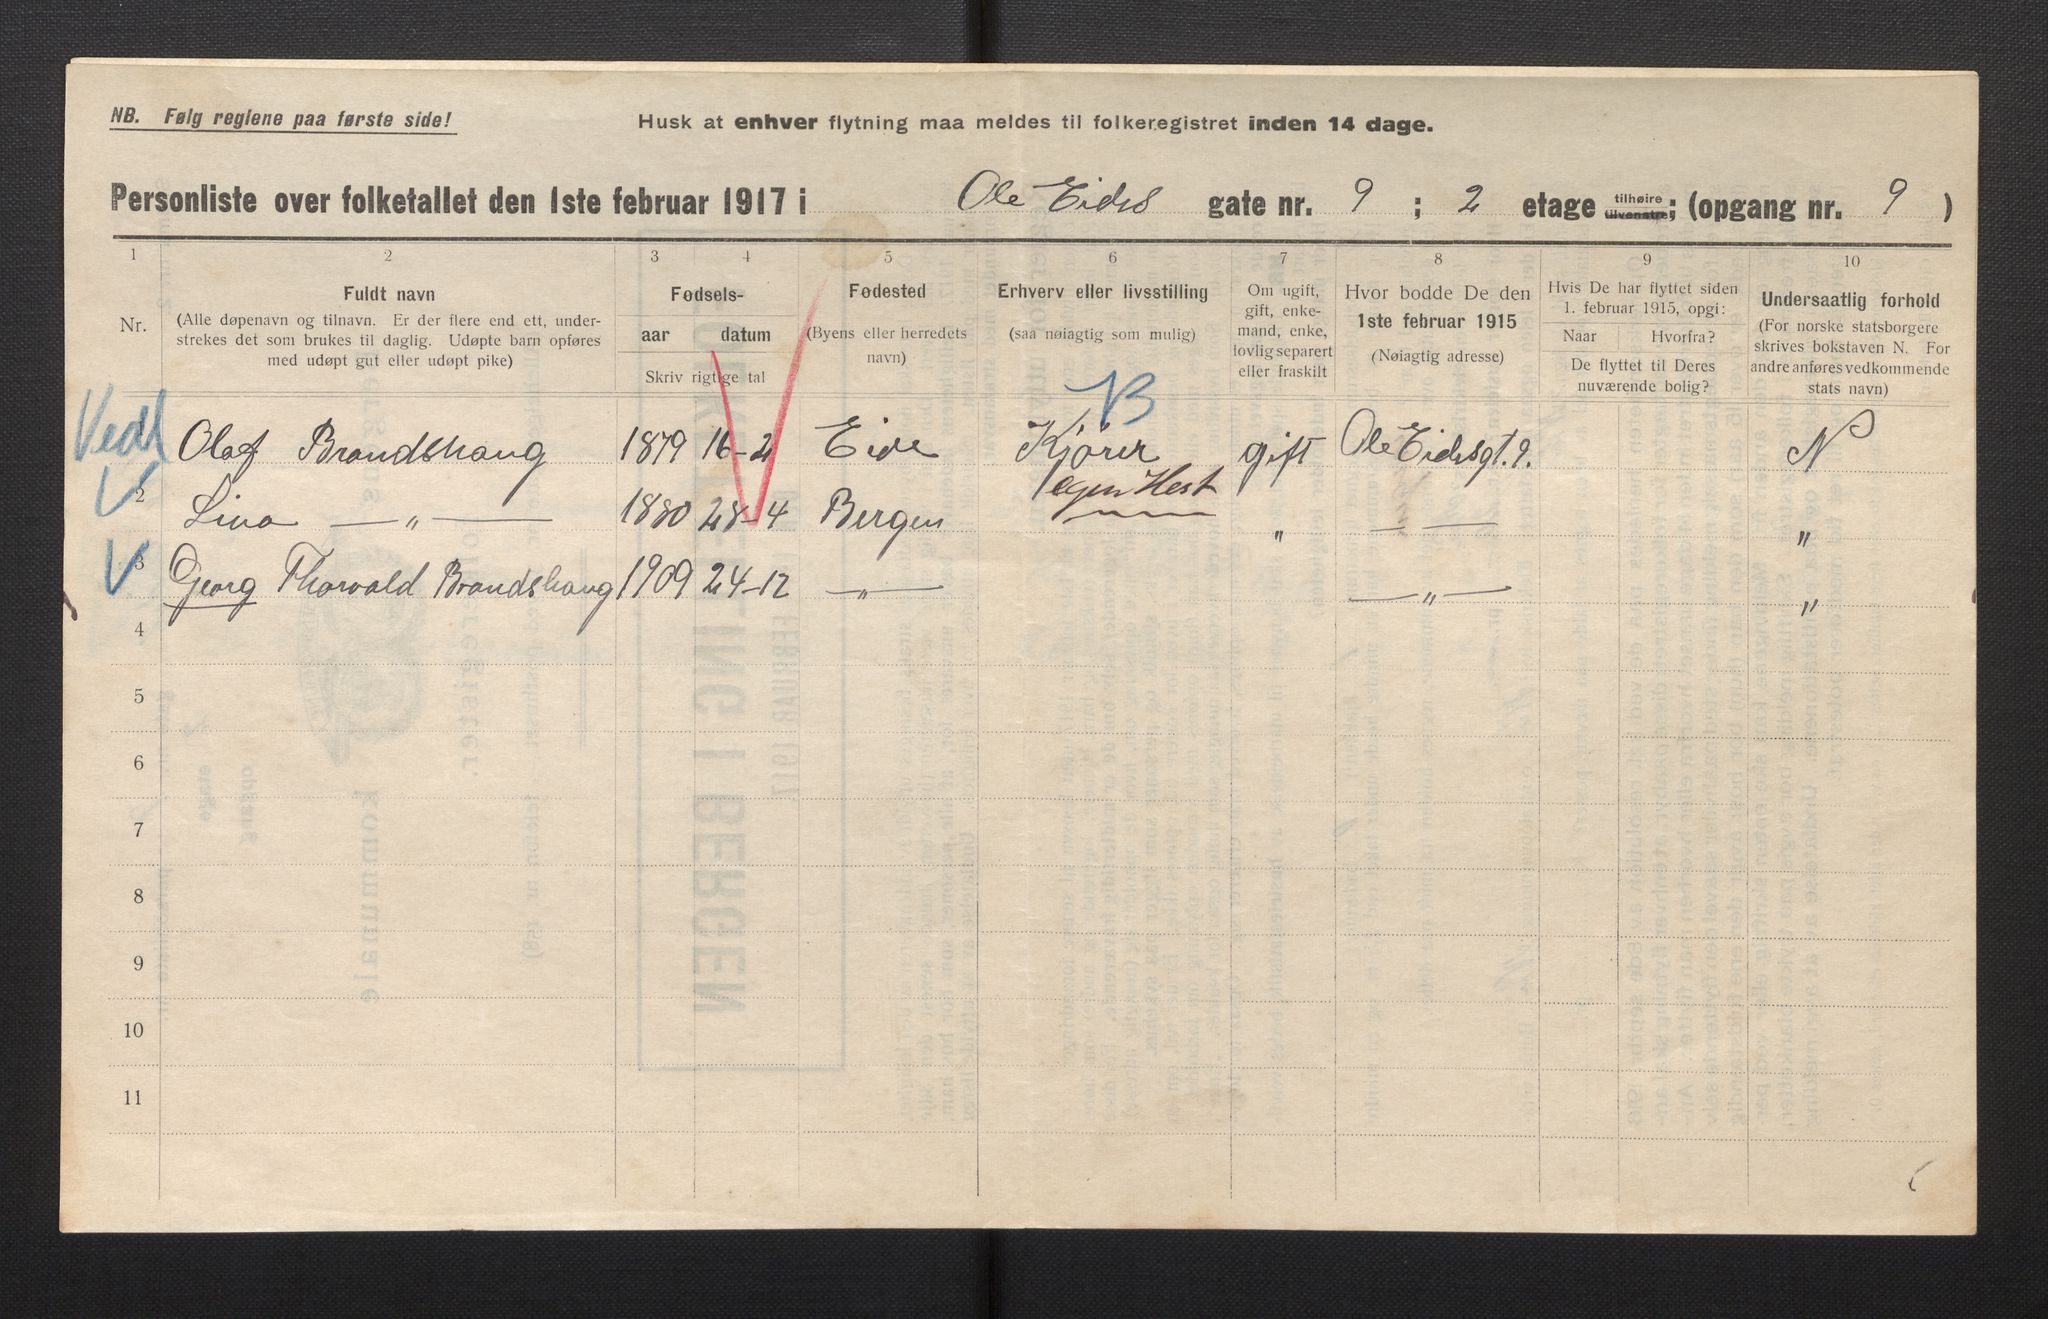 NB. Følg reglene paa første side!
Husk at enhver flytning maa meldes til folkeregistret inden 14 dage.
Personliste over folketallet den 1ste februar 1917 i Ole Eids gate nr. 9 ; 2 etage tilhøire tilvenstre; (opgang nr. 9 )
1 2 3 4 5 6 7 8 9 10
Nr.
Fuldt navn
(Alle døpenavn og tilnavn. Er der flere end ett, under-
strekes det som brukes til daglig. Udøpte barn opføres
med udøpt gut eller udøpt pike)
Fødsels-
aar datum
Skriv rigtige tal
Fødested
(Byens eller herredets
navn)
Erhverv eller livsstilling
(saa nøiagtig som mulig)
Om ugift,
gift, enke-
mand, enke,
lovlig separert
eller fraskilt
Hvor bodde De den
1ste februar 1915
(Nøiagtig adresse)
Hvis De har flyttet siden
1. februar 1915, opgi:
Naar Hvorfra?
De flyttet til Deres
nuværende bolig?
Undersaatlig forhold
(For norske statsborgere
skrives bokstaven N. For
andre anføres vedkommende
stats navn)
B
Vedl Olaf Brandshaug 1879 16-2 Eide Kjører gift Ole Eidsgt. 9. N
egen Hest
2 Lina — " — 1880 28-4 Bergen " — — "
3 Georg Thorvald Brandshaug 1909 24-12 — " — — " — "
4
5
6
7
8
9
10
11